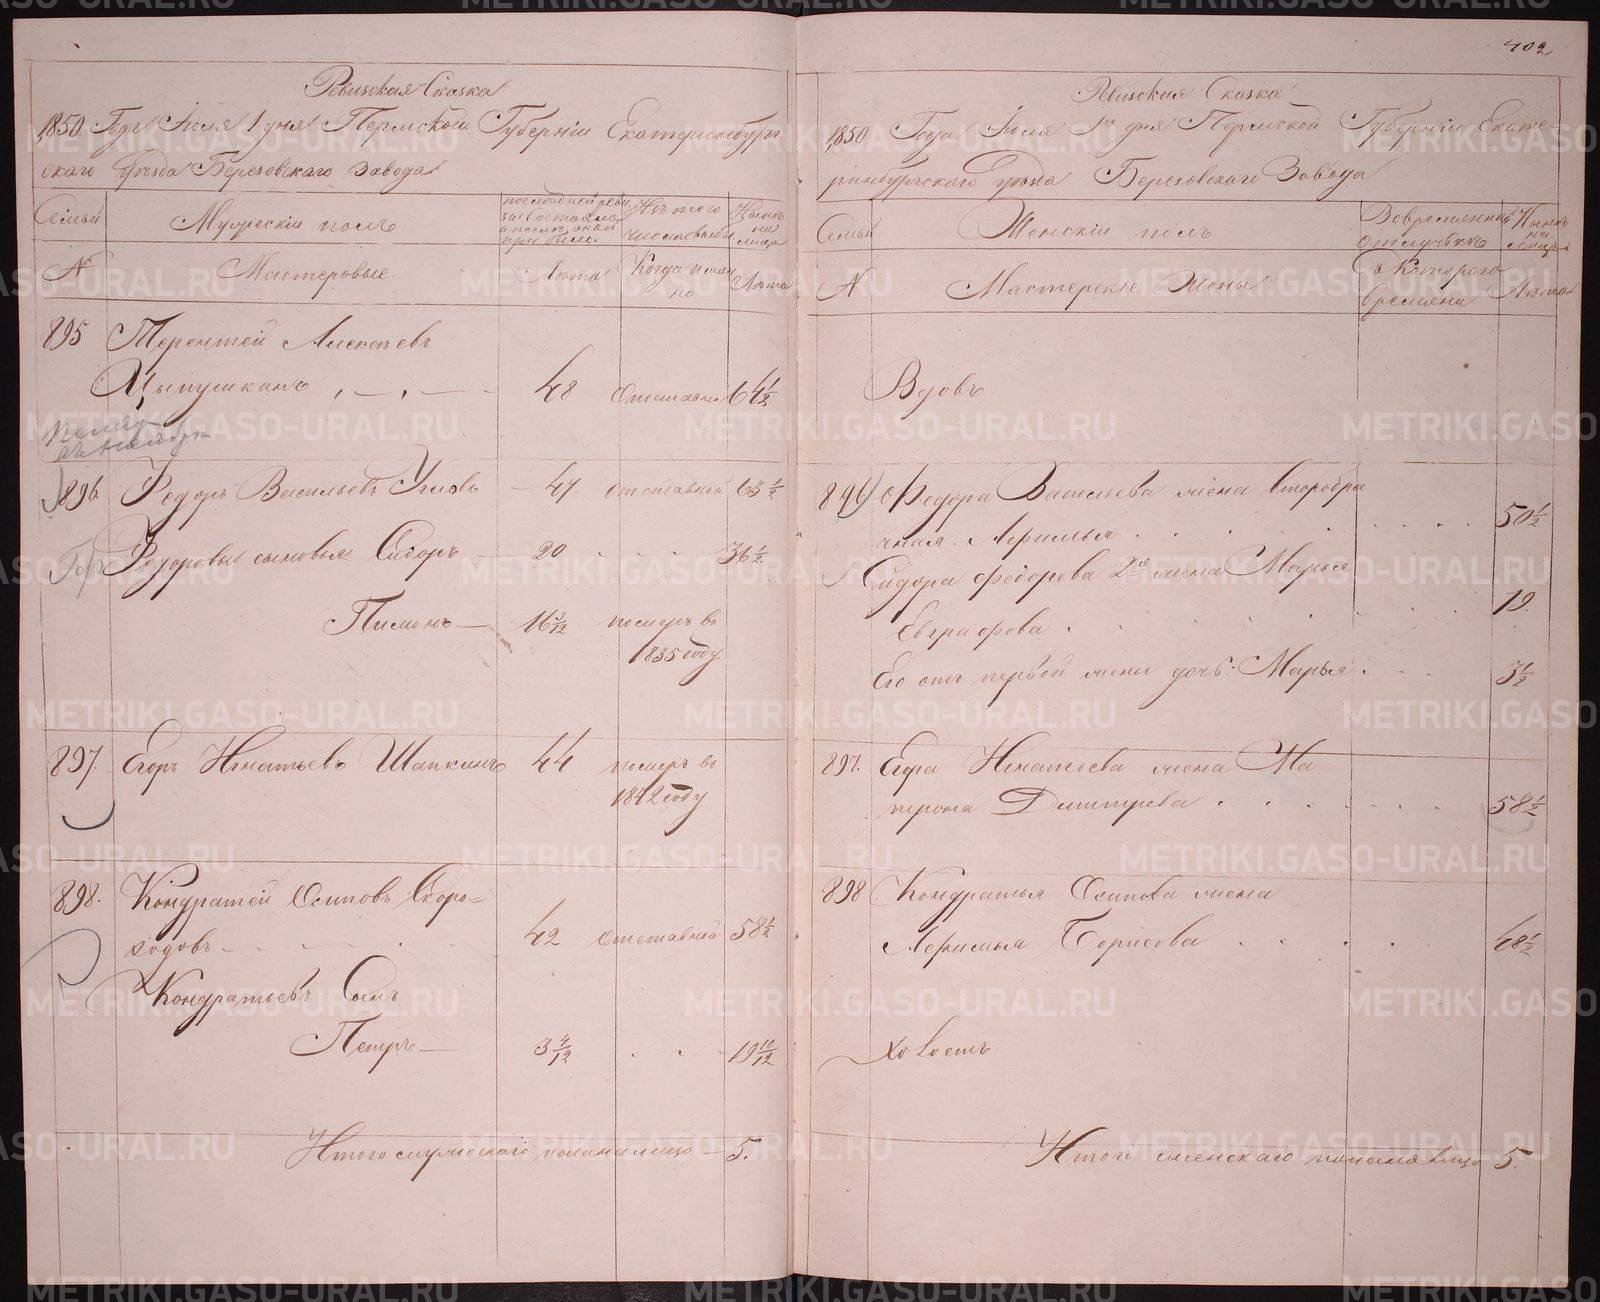 402
Ревизская Сказка
1850 Года Июля 1 дня Пермской Губернии Екатеринбург-
скаго Уѣзда Березовскаго Завода
Семьи
Мужескій полъ
последней реви
зіи состояло
и после оной
прибыло.
Изъ того
числа выбы
Нынѣ
на
лице
№
Мастеровые.
Лѣта
Когда имян
но
Лѣта
895 Терентей Алексеевъ
Цыпушкинъ 48 Отставно 64 1/2
896 Федоръ Васильевъ 47 отставной 63 1/2
Федоровы сыновья Сидоръ 20 36 1/2
Пимонъ 16 3/12 померъ въ
1835 году
897. Егоръ Игнатьевъ Шапкинъ 44 померъ въ
1842 году
898. Кондратей Осиповъ Скоро=
ходовъ 42 Отставной 58 1/2
Кондратьевъ Сынъ
Петръ 3 4/12 19 10/12
Итого мужескаго пола на лицо 5.
Ревизская Сказка
1850 Года Июля 1го дня Пермской Губерніи Екате-
ринбургскаго Уѣзда Березовскаго Завода
Семьи
Женскій полъ
Во временной
отлучьки
Нынѣ
на
лице
№
Мастерскіе Жоны
съ Котораго
времяни
Лѣта
Вдовъ
896 Федора Васильева жена второбра
чная Афимья 50 1/2
Сидора Федорова 2я жена Марья
Евграфова 19.
Его отъ первой жены дочь: Марья 3 1/2
897. Егора Игнатьева жена Ма
трона Дмитрева 58 1/2
898 Кондратья Осипова жена
Афимья Борисова 48 1/2
Холостъ
Итого женскаго пола на лицо 5.
METRIKI.GASO-URAL.RU